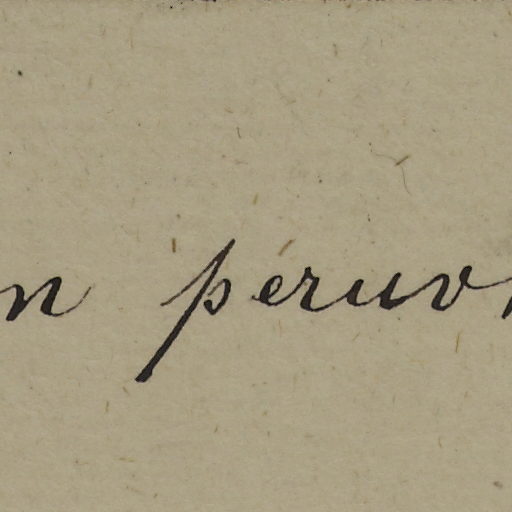 n peruv